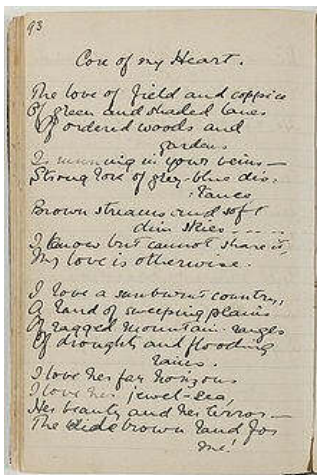 93
Core of my Heart.
The love of field and coppice
Of green and shaded lanes
Of ordered woods and
gardens
Is running in your veins —
Strong love of grey-blue dis-
tance
Brown streams and soft
dim skies - - - -
I know but cannot share it,
My love is otherwise.
I love a sunburnt country,
A land of sweeping plains
Of ragged mountain ranges
Of droughts and flooding
rains.
I love her far horizons
I love her jewel-sea,
Her beauty and her terror —
The wide brown land for
me!